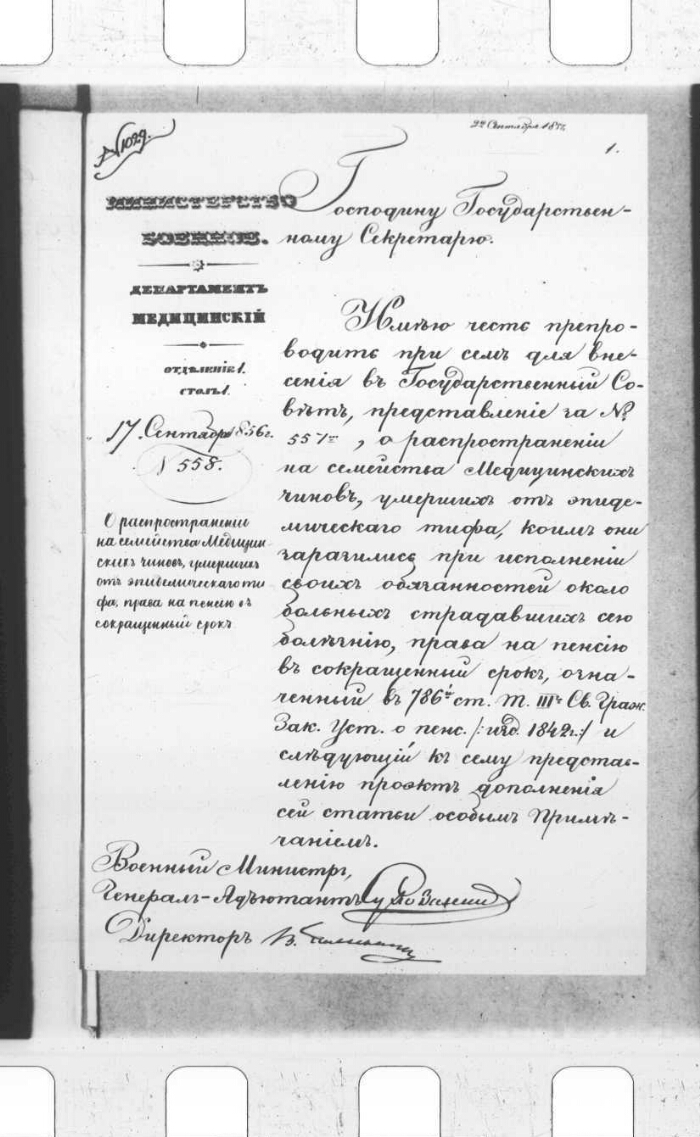 № 1029.
22 Сентября 185
1.
МИНИСТЕРСТВО
ВОЕННОЕ.
ДЕПАРТАМЕНТЪ
МЕДИЦИНСКІЙ
ОТДѢЛЕНІЕ 1.
СТОЛЪ 1.
17 Сентября 1856 г.
№ 558.
О распространеніи
на семейства Медицин-
скихъ чиновъ, умершихъ
отъ эпидемическаго ти-
фа, права на пенсію въ
сокращенный срокъ
Господину Государствен-
ному Секретарю.
Имѣю честь препро-
водить при семъ для вне-
сенія въ Государственный Со-
вѣтъ, представленіе за №
557, о распространеніи
на семейства Медицинскихъ
чиновъ, умершихъ отъ эпиде-
мическаго тифа, коимъ они
заразились при исполненіи
своихъ обязанностей около
больныхъ страдавшихъ сею
болѣзнію, права на пенсію
въ сокращенный срокъ, озна-
ченный въ 786й ст. Т. III Св. Граж.
Зак. Уст. о пенс. /: изд. 1842 г.:/ и
слѣдующій къ сему представ-
ленію проэктъ дополненія
сей статьи особымъ Примѣ-
чаніемъ.
Военный Министръ,
Генералъ-Адъютантъ Сухозанетъ
Директоръ В.